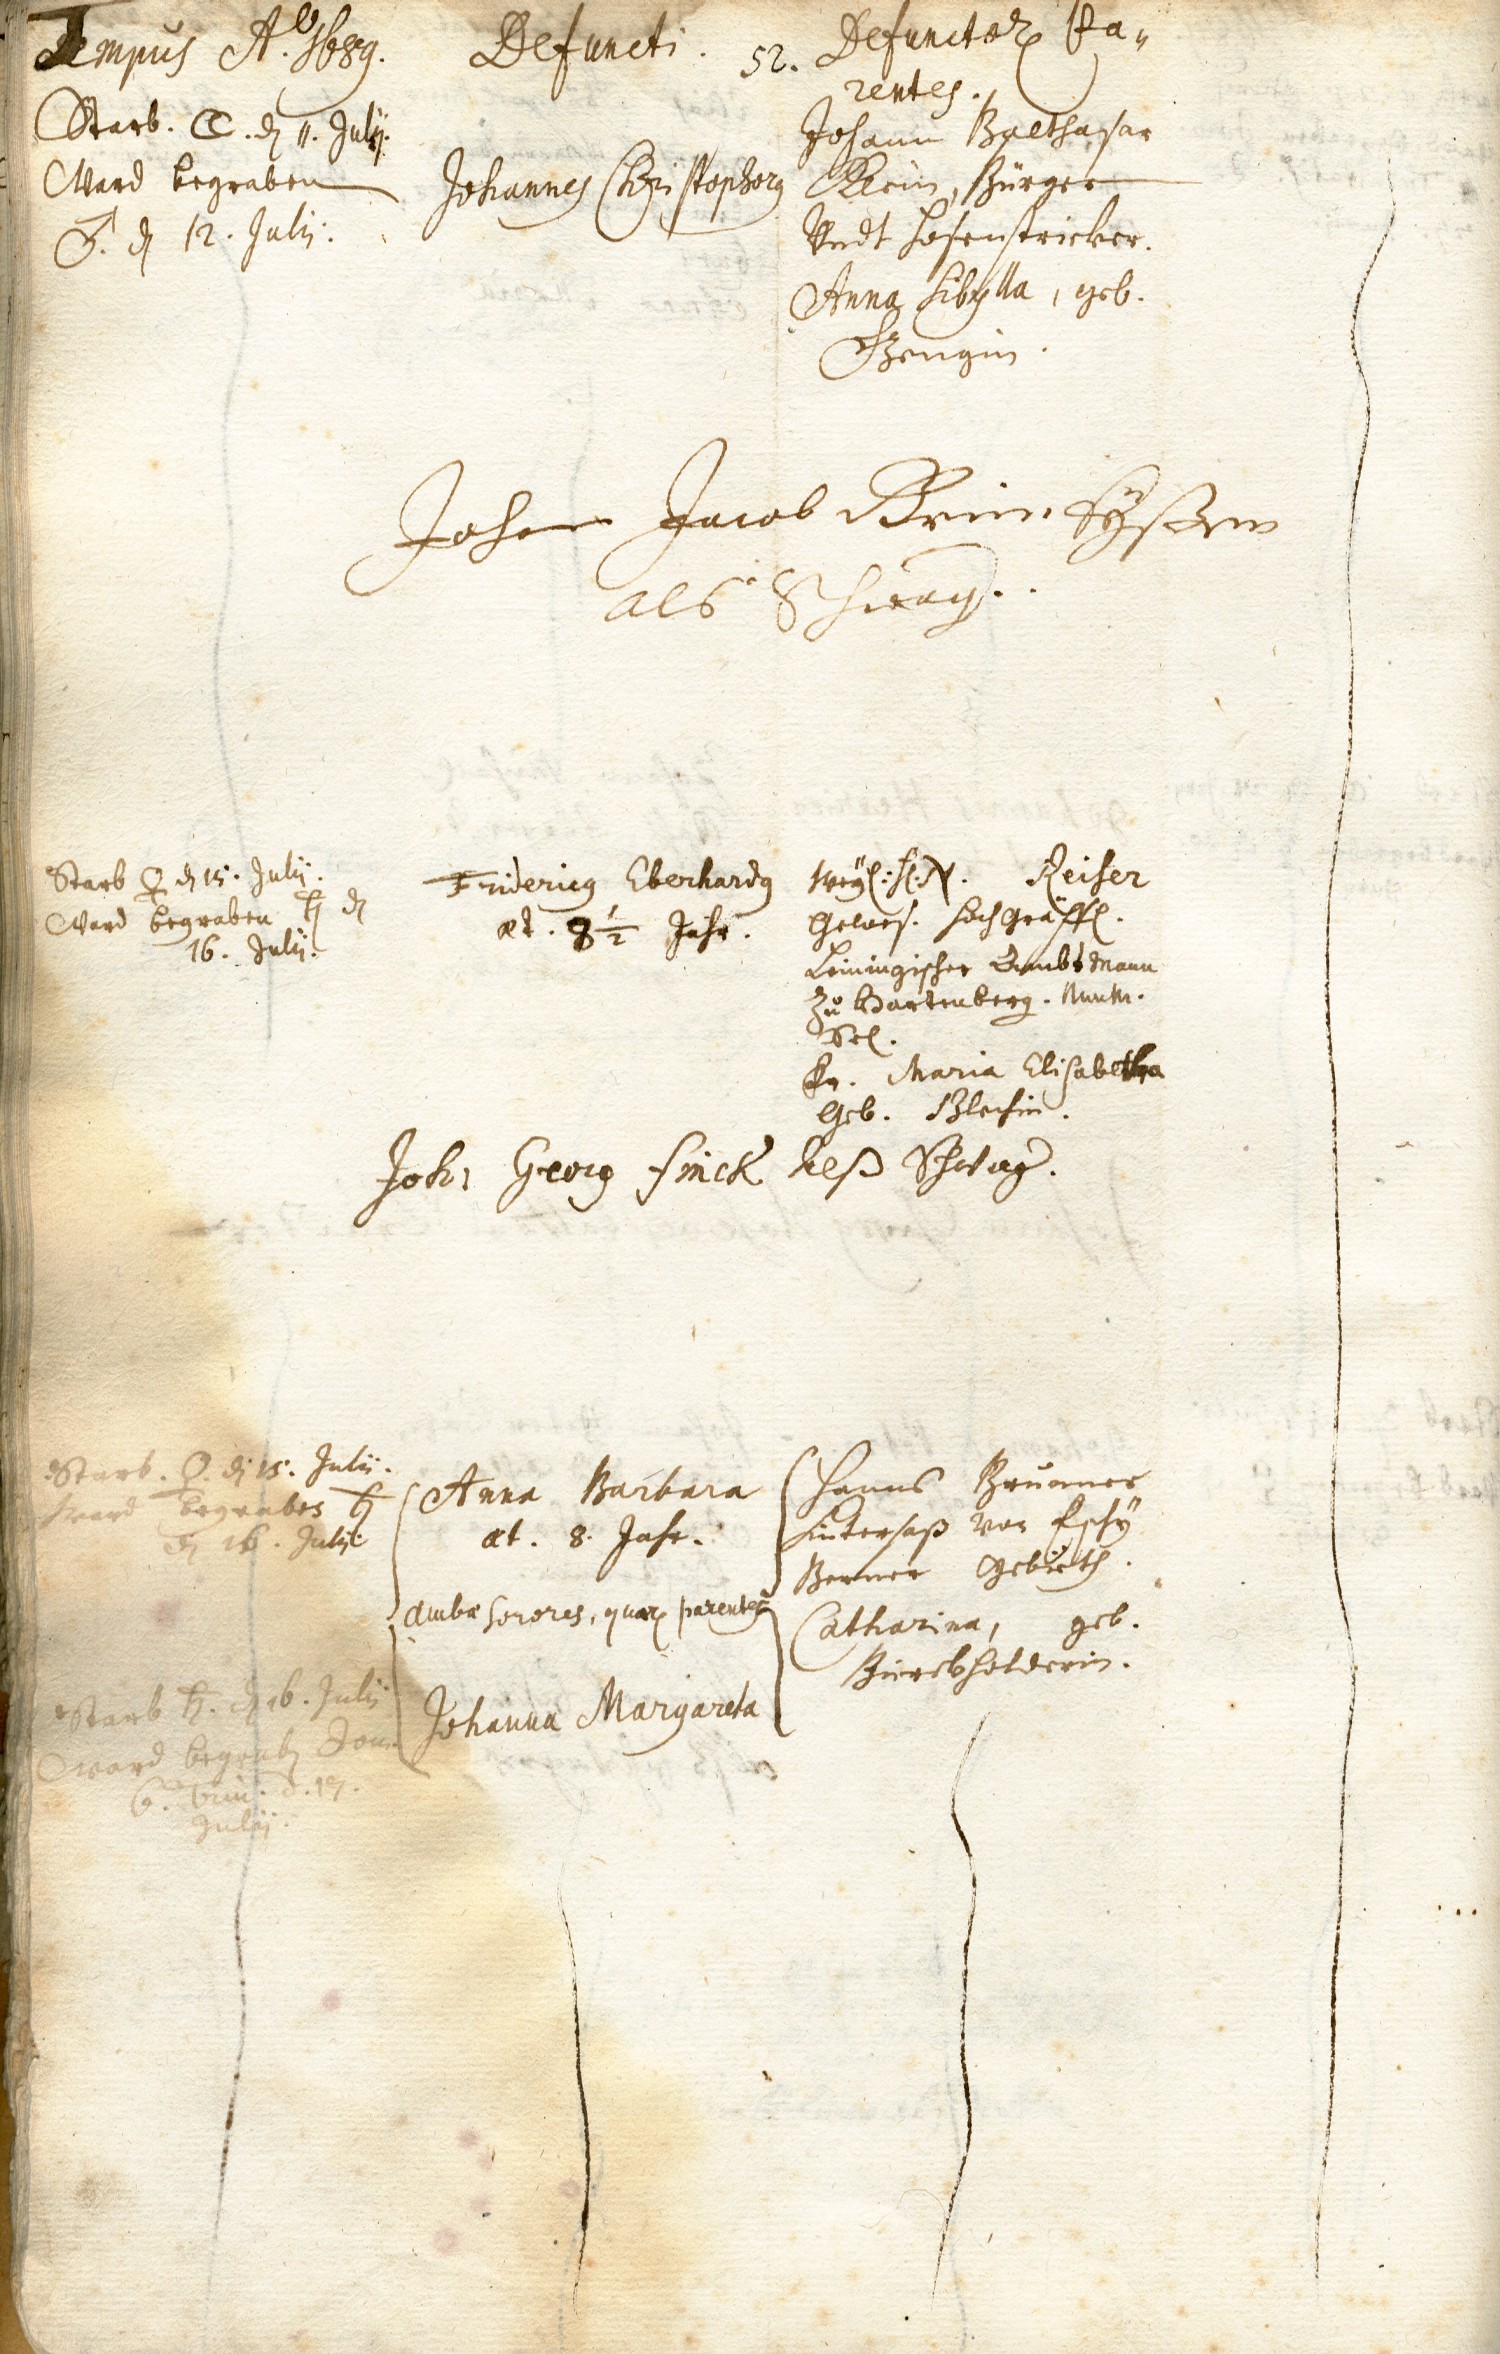 Tempus Aº 1689.
Defuncti.
52.
Defunctor. Pa-
rentes.
Starb. ☾. d. 11. Julij.
Ward begraben
♂. d. 12. Julij.
Johannes Christophorg
Johann Balthasar
Klein, Bürger
Undt hosenstricker.
Anna Sibylla, geb.
Johan Jacob
als Schwag.
Starb ♀ d. 15. Julij.
Ward begraben ♄ d.
16. Julij.
Fridericg Eberhardg
æt. 8 1/2 Jahr.
Weyl. H. N. Reiser
Gewes. hochgräffl.
Leiningischer Ambtmann
Zu Hartenberg. Nunm.
Sel.
Fr. Maria Elisabetha
Geb.
Joh: Georg Finck Alß Schwag.
Starb. ♀. d. 15. Julij.
Ward begraben ♄
d. 16. Julij.
Anna Barbara
æt. 8. Jahr.
Hanns Brunner
hintersaß von
Berner Gebieth.
Ambæ Sorores, quar. parentes
Catharina, geb.
Starb ♄. d. 16. Julij
Ward begrab. Dom.
6. Trin. d. 17.
Julij.
Johanna Margareta